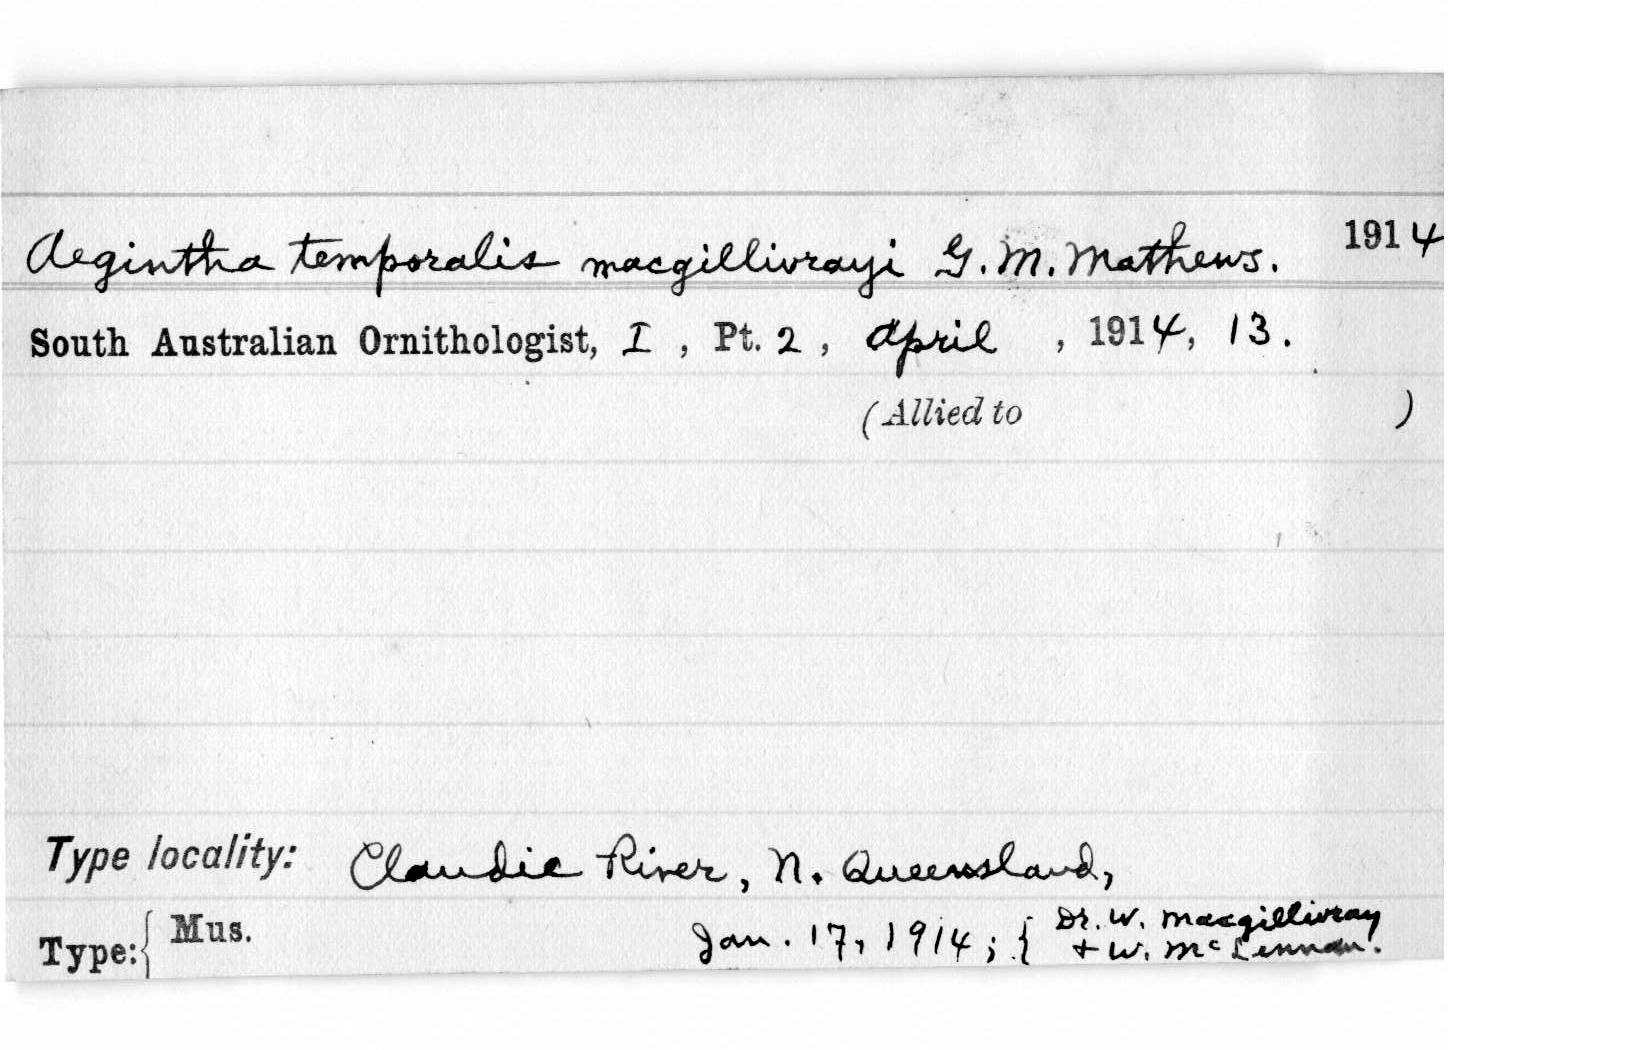 Aegintha temporalis macgillivrayi G. M. Mathews. 1914
South Australian Ornithologist, I , Pt. 2 , April , 1914, 13.
(Allied to )
Type locality: Claudie River, N. Queensland,
Type: { Mus. Jan. 17, 1914; { Dr. W. Macgillivray
+ W. McLennan.